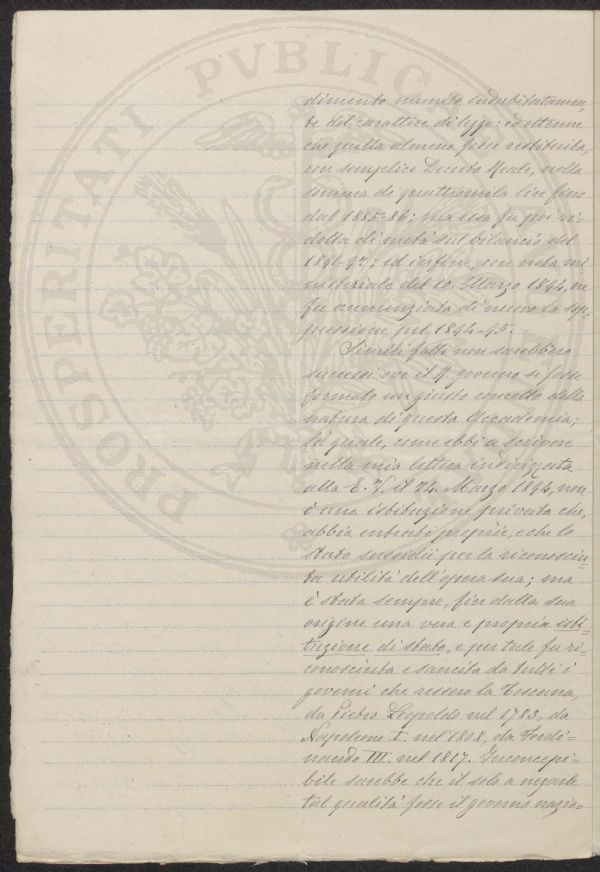 PROSPERITATI PVBLIC
dimento munito indubitatamen=
te del carattere di legge: ed ottenne
che quella almeno fosse restituita,
con semplice Decreto Reale, nella
somma di quattromila lire fino
dal 1885-86; ma essa fu poi ri=
dotta di metà sul bilancio del
ed infine, con nota mi=
nisteriale del 10 Marzo 1894,
fu annunziata di nuovo la sop=
pressione pel 1894-95.
Simili fatti non sarebbero
successi ove il R. governo si fosse
formato un giusto concetto della
natura di questa Accademia;
la quale, come ebbi a scrivere
nella mia lettera indirizzata
alla E. V. il 24 Marzo 1894, non
è una istituzione privata che,
abbia entrate proprie, e che lo
Stato sussidii per la riconosciu=
ta utilità dell'opera sua; ma
è stata sempre, fin dalla sua
origine una vera e propria isti=
tuzione di stato, e per tale fu ri=
conosciuta e sancita da tutti i
governi che ressero la Toscana,
da Pietro Leopoldo nel 1783, da
Napoleone I. nel 1808, da Ferdi=
nando III. nel 1817. Inconcepi=
bile sarebbe che il solo a negarle
tal qualità fosse il governo nazio=